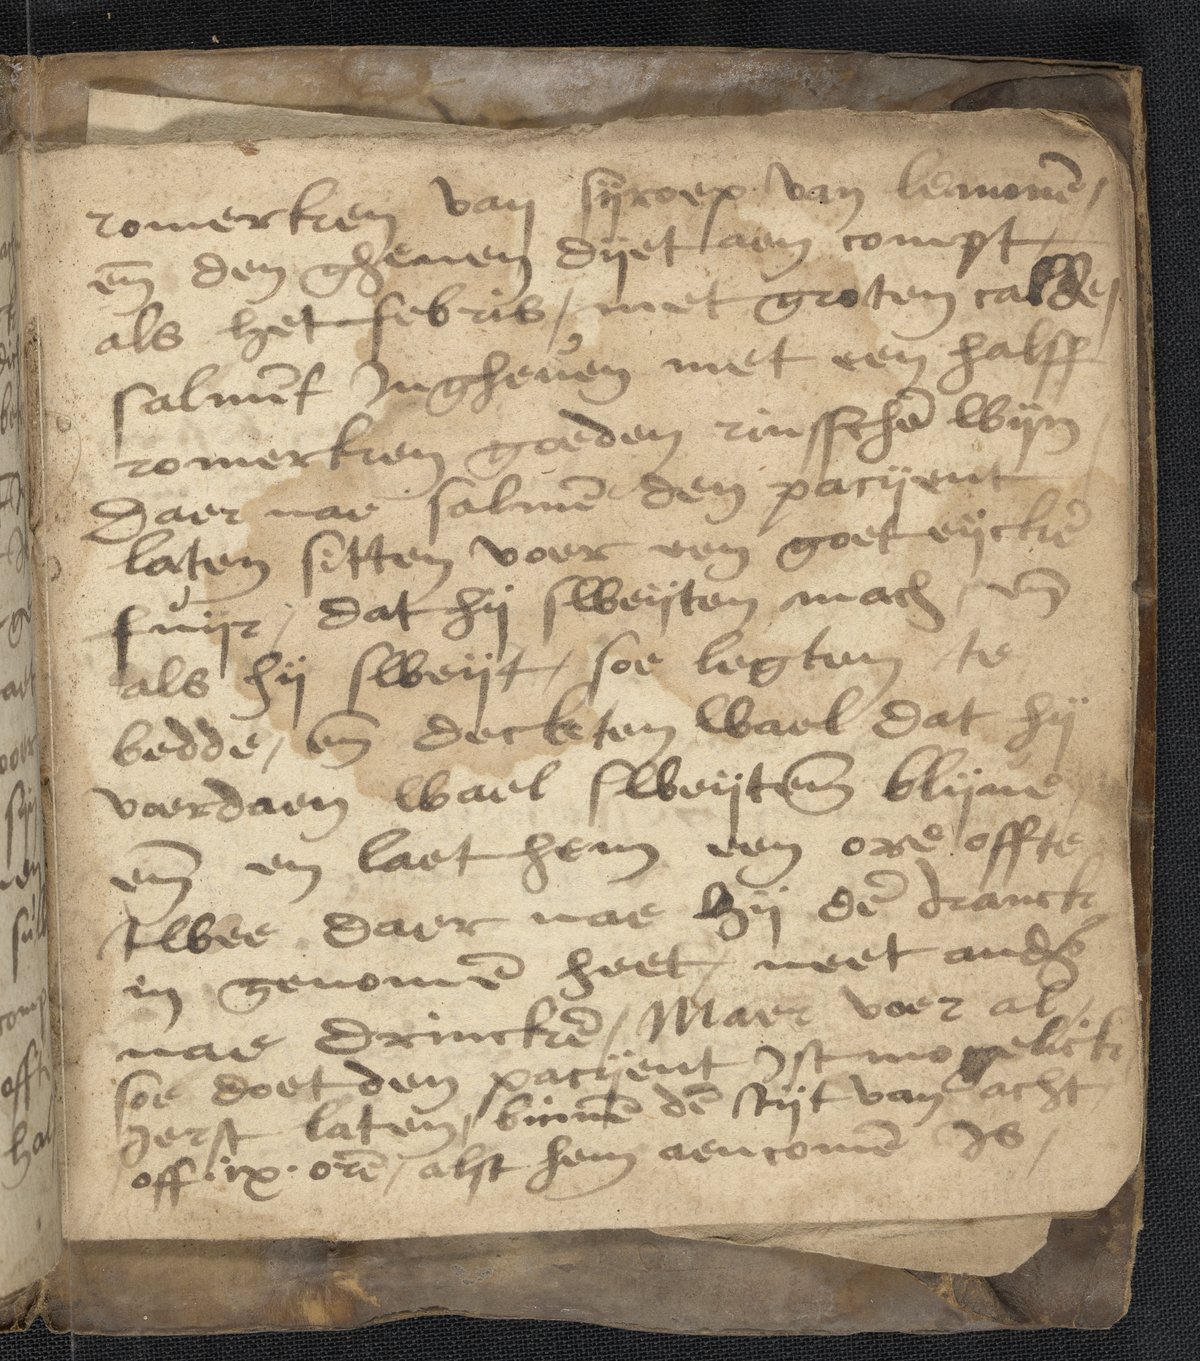 romerken van sijroep van lemonē /
en̄ den ghenen dijet aen compt /
als het febris / met groten calde /
salmēt Ingheuen met een halff
romerken goeden rinsschē wijn
Daer nae salmē den pacijent
laten sitten voer een goet eijckē
fuijr / dat hij sweijten mach / en̄
als hij sweijt / soe legten te
bedde / en̄ deckten wael dat hij
voerdaen wael sweijten̄ blijue /
en̄ en laet hem een ore offte
twee daer nae hij dē dranck
in genomē heet / neet anders
nae drinckē / Maer voer al /
soe doet den pacijent Ist mogelick
ierst laten / binnē dē tijt van acht
off .ix. orē / alst hem aencomē Is /